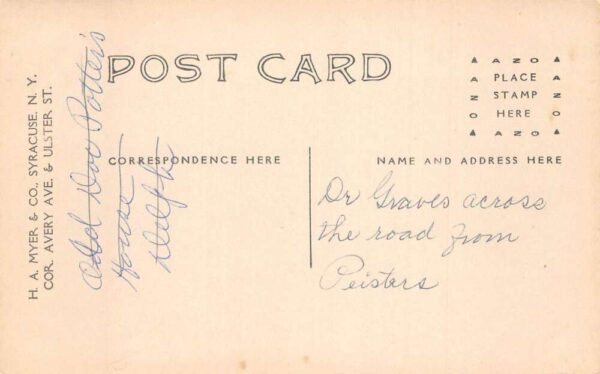 POST CARD
AZO
PLACE
STAMP
HERE
AZO
CORRESPONDENCE HERE
NAME AND ADDRESS HERE
H. A. MYER & CO., SYRACUSE, N. Y.
COR. AVERY AVE. & ULSTER ST.
Old Doc Potter's
House
Delphi
Dr Graves across
the road from
Peisters